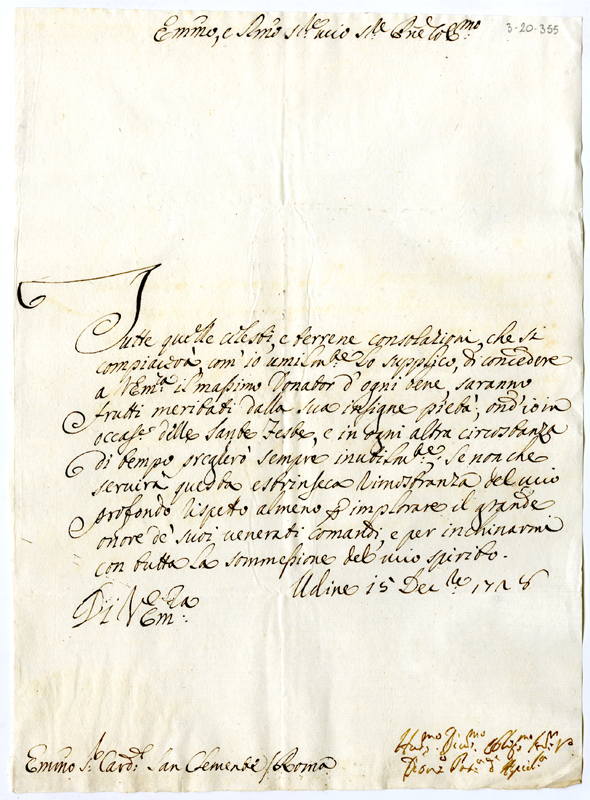 Em̃mo, e Rmo Sig.r mio Sig.r Pñe Col.mo
3-20-355
Tutte quelle celesti, e terrene consolazioni, che si
compiacerà, com'io umilm.te lo supplico, di concedere
a V Em.a il massimo Donator d'ogni bene, saranno
frutti meritati dalla sua insigne pietà, ond'io in
occas.e delle Sante Feste, e in ogni altra circostanza
di tempo pregherò sempre inutilm.te; Se non che
servirà questa estrinseca dimostranza del mio
profondo rispetto almeno p implorare il grande
onore de' suoi venerati comandi, e per inchinarmi
con tutta la sommessione del mio spirito.
Di V Em.za
Udine 15 Dec.re 1728
Em̃mo S.r Card.l San Clemente / Roma
Hum.mo Div.mo Oblig.mo Ser.r V.o
Dion.o Pat.a d'Aquil.a